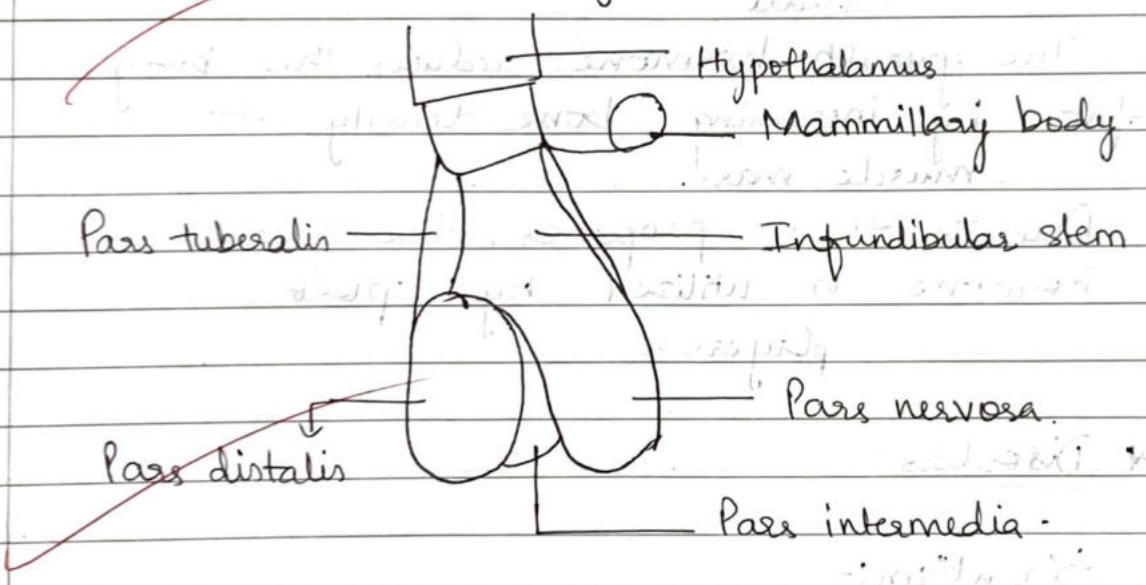 Hypothalamus
Mammillary body
Pars tuberalis
Infundibular stem
Pars nervosa.
Pars distalis
Pars intermedia.